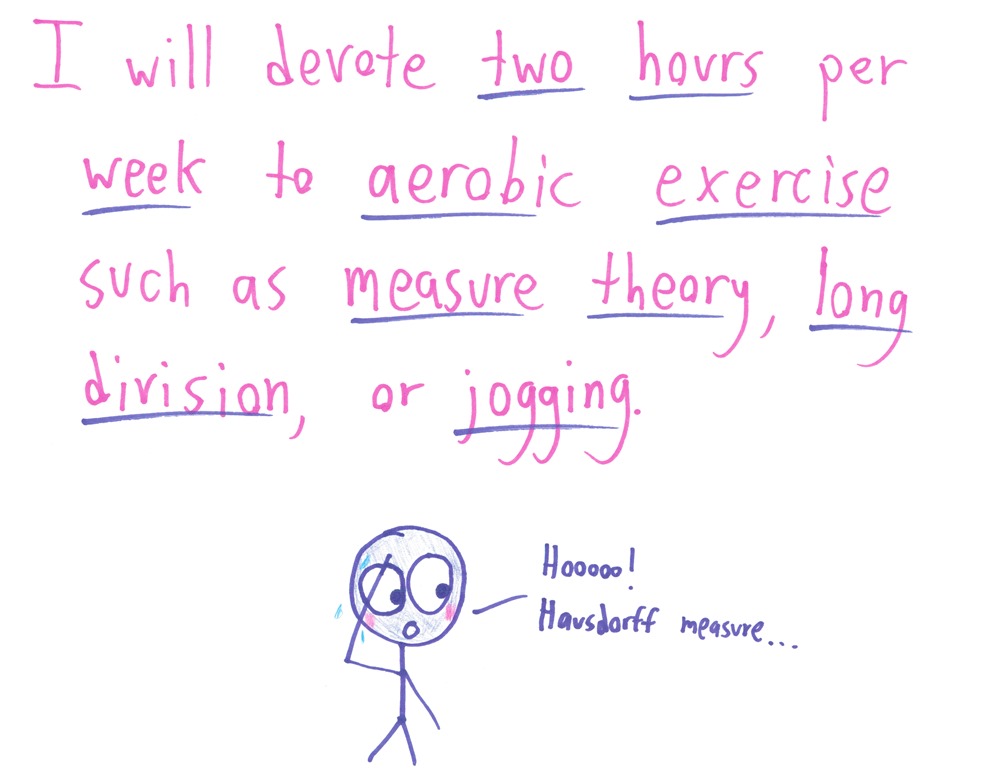 I will devote two hours per
week to aerobic exercise
such as measure theory, long
division, or jogging.
Hooooo!
Hausdorff measure...